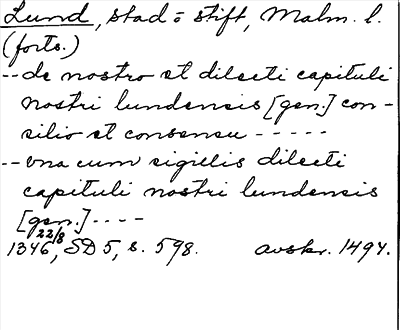 Lund, stad o stift, Malm. l.
(forts.)
-- de nostro et dilecti capituli
nostri lundensis [gen.] con-
silio et consensu -----
-- vna cum sigillis dilecti
capituli nostri lundensis
[gen.] ----
22/8
1346, SD 5, s. 598. avskr. 1494.